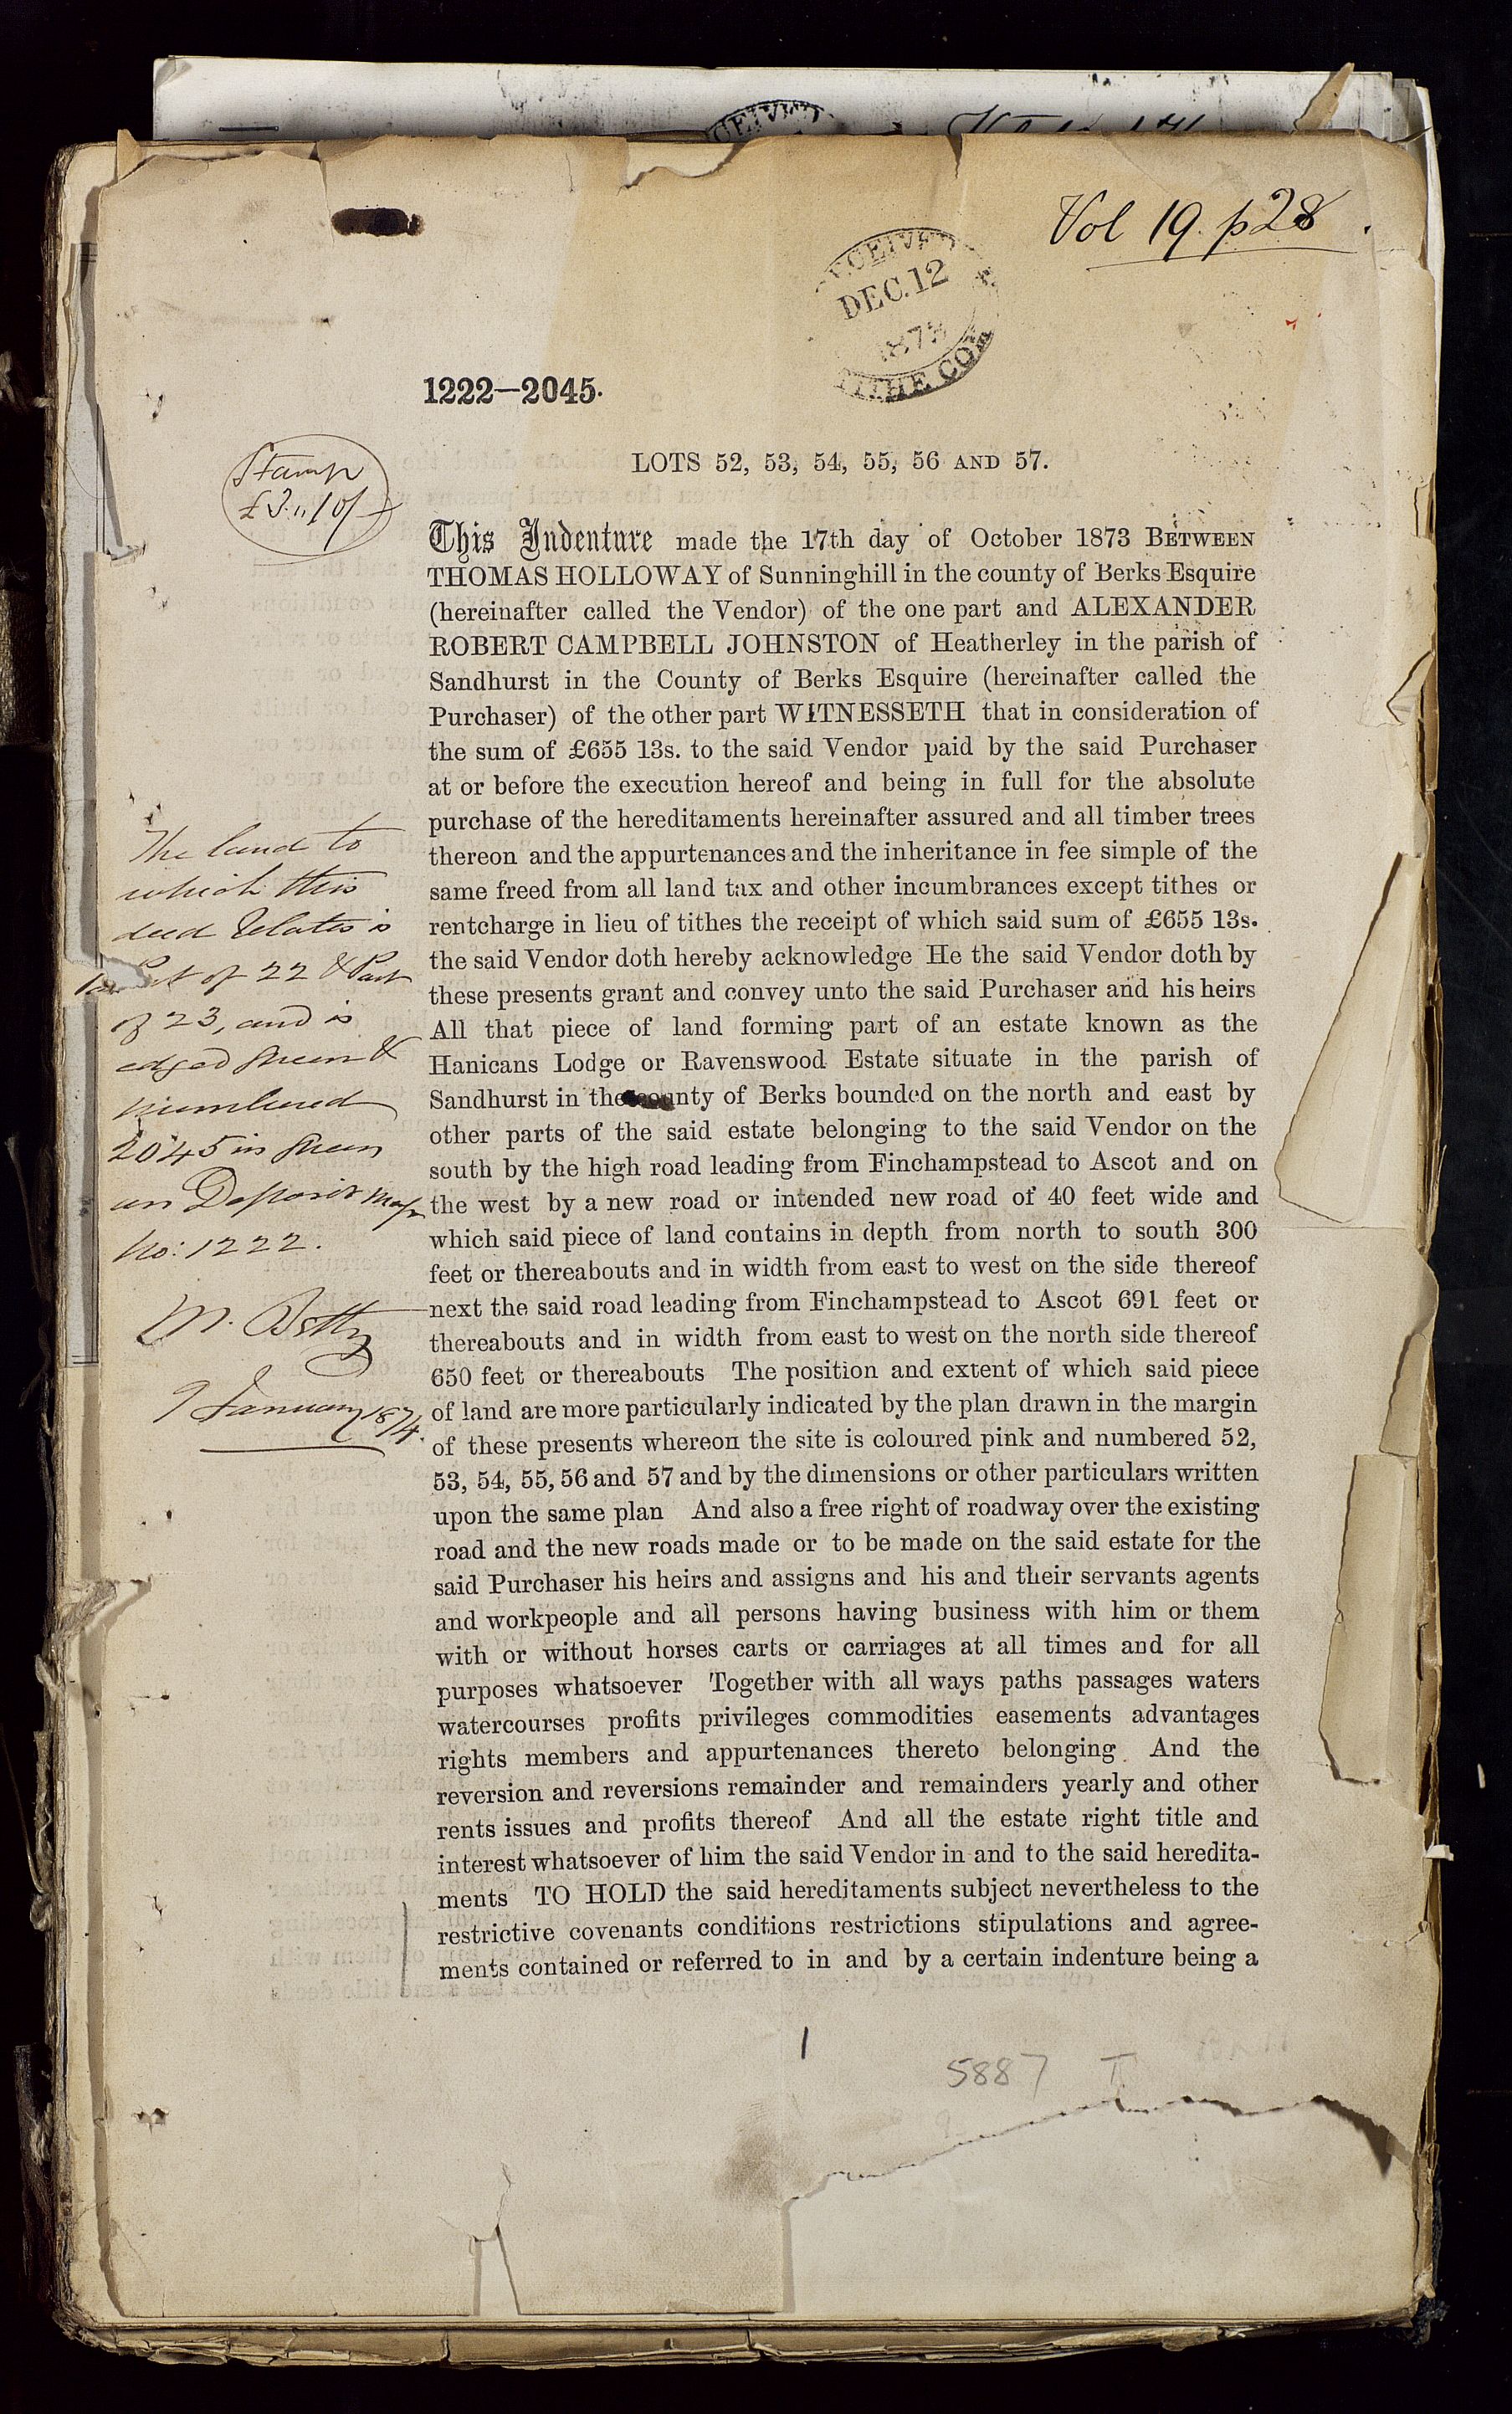 Vol 19. p28.
RECEIVED
DEC. 12
1873
TITHE COM
1222—2045.
LOTS 52, 53, 54, 55, 56 AND 57.
Stamp
£3"10/-
This Indenture made the 17th day of October 1873 BETWEEN
THOMAS HOLLOWAY of Sunninghill in the county of Berks Esquire
(hereinafter called the Vendor) of the one part and ALEXANDER
ROBERT CAMPBELL JOHNSTON of Heatherley in the parish of
Sandhurst in the County of Berks Esquire (hereinafter called the
Purchaser) of the other part WITNESSETH that in consideration of
the sum of £655 13s. to the said Vendor paid by the said Purchaser
at or before the execution hereof and being in full for the absolute
purchase of the hereditaments hereinafter assured and all timber trees
thereon and the appurtenances and the inheritance in fee simple of the
same freed from all land tax and other incumbrances except tithes or
rentcharge in lieu of tithes the receipt of which said sum of £655 13s.
the said Vendor doth hereby acknowledge He the said Vendor doth by
these presents grant and convey unto the said Purchaser and his heirs
All that piece of land forming part of an estate known as the
Hanicans Lodge or Ravenswood Estate situate in the parish of
Sandhurst in the county of Berks bounded on the north and east by
other parts of the said estate belonging to the said Vendor on the
south by the high road leading from Finchampstead to Ascot and on
the west by a new road or intended new road of 40 feet wide and
which said piece of land contains in depth from north to south 300
feet or thereabouts and in width from east to west on the side thereof
next the said road leading from Finchampstead to Ascot 691 feet or
thereabouts and in width from east to west on the north side thereof
650 feet or thereabouts The position and extent of which said piece
of land are more particularly indicated by the plan drawn in the margin
of these presents whereon the site is coloured pink and numbered 52,
53, 54, 55, 56 and 57 and by the dimensions or other particulars written
upon the same plan And also a free right of roadway over the existing
road and the new roads made or to be made on the said estate for the
said Purchaser his heirs and assigns and his and their servants agents
and workpeople and all persons having business with him or them
with or without horses carts or carriages at all times and for all
purposes whatsoever Together with all ways paths passages waters
watercourses profits privileges commodities easements advantages
rights members and appurtenances thereto belonging And the
reversion and reversions remainder and remainders yearly and other
rents issues and profits thereof And all the estate right title and
interest whatsoever of him the said Vendor in and to the said heredita-
ments TO HOLD the said hereditaments subject nevertheless to the
restrictive covenants conditions restrictions stipulations and agree-
ments contained or referred to in and by a certain indenture being a
The land to
which this
deed relates is
Part of 22 & Part
of 23, and is
edged green &
numbered
2045 in green
on Deposit Map
No: 1222.
9 January 1874.
1
5887 T